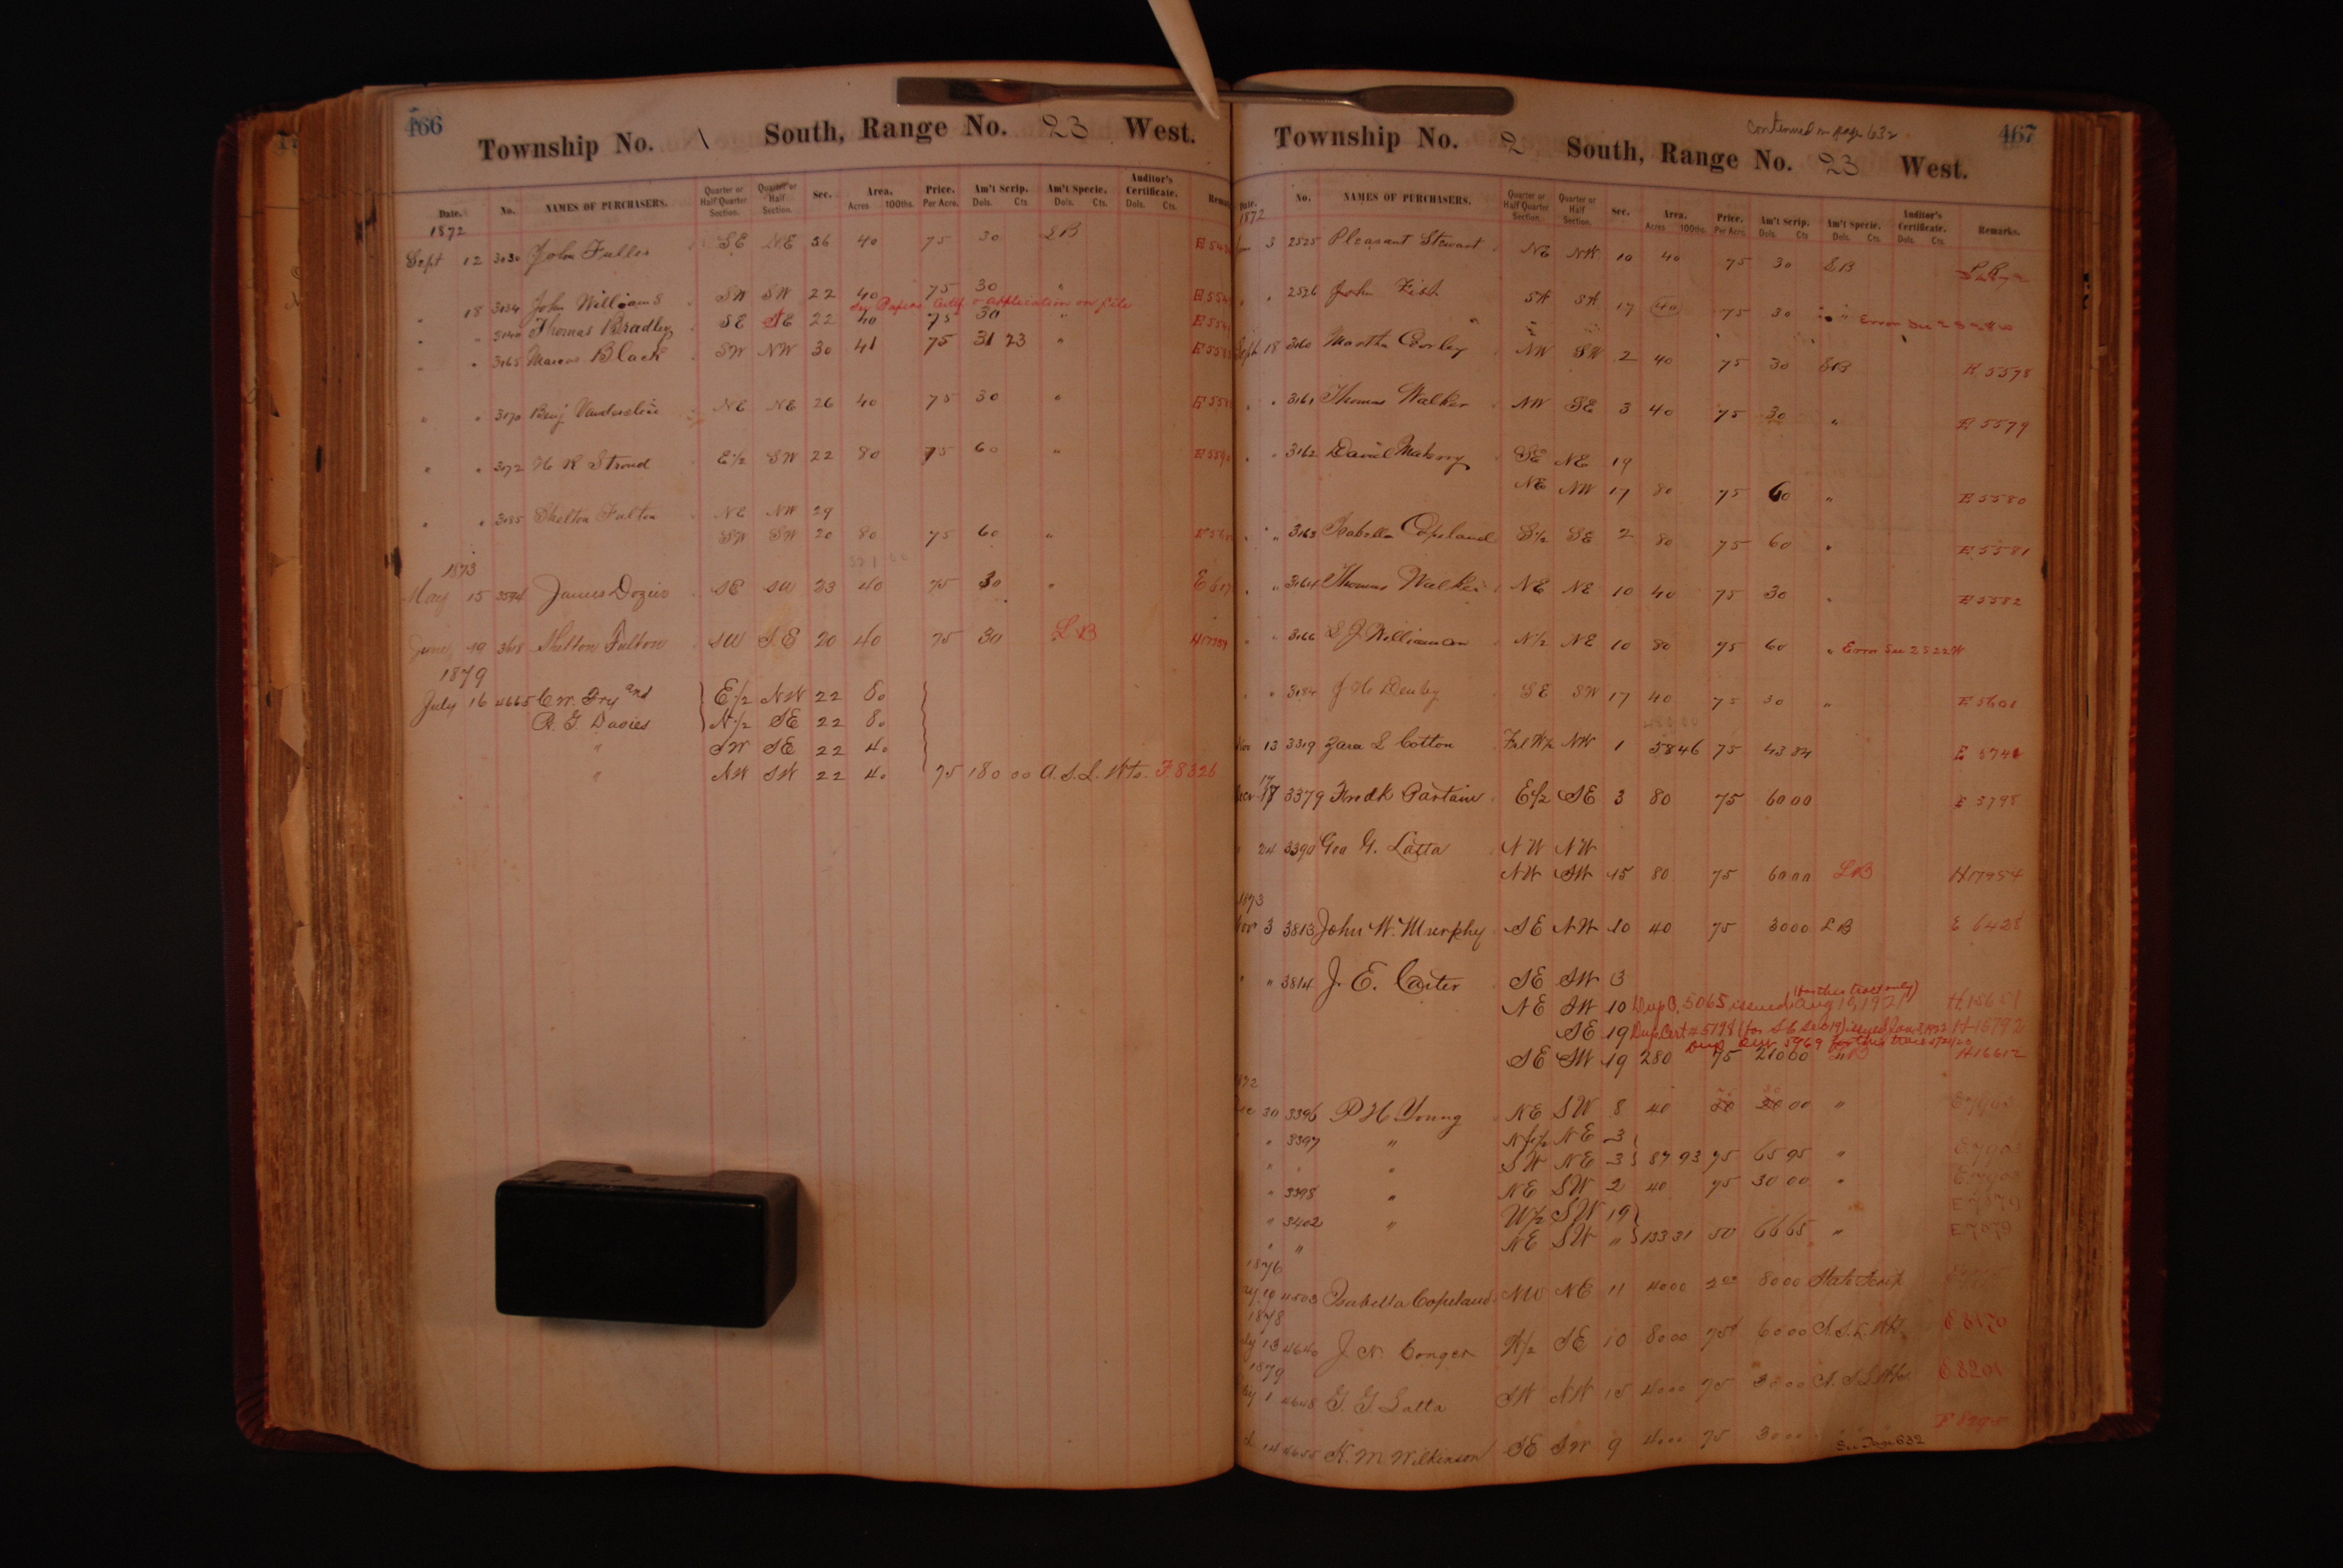 466
Township No. 1 South, Range No. 23 West.
Date. No. NAMES OF PURCHASERS. Quarter or Half Quarter Section. Quarter or Half Section. Sec. Area. Acres 100ths. Price. Per Acre. Am't Scrip. Dols. Cts Am't Specie. Dols. Cts. Auditor's Certificate. Dols. Cts.
1872
Sept 12 3030 John Fuller SE NE 36 40 75 30 LB
" 18 3134 John Williams SW SW 22 40 75 30 "
See Papers Certif & application on file
" " 3140 Thomas Bradley SE SE 22 40 75 30 "
" " 3165 Marcus Black SW NW 30 41 75 31 23 "
" " 3170 Benj NE NE 26 40 75 30 "
" " 3172 H R Stroud E1/2 SW 22 80 75 60 "
" " 3185 Shelton Fulton NE NW 29
SW SW 20 80 75 60 "
321 00
1873
May 15 3594 James Dozier SE SW 23 40 75 30 "
June 19 3618 Shelton Fulton SW SE 20 40 75 30 LB
1879
July 16 4665 C.W. Fry and E1/2 NW 22 80
R. G. Davies N1/2 SE 22 80
" SW SE 22 40
" NW SW 22 40 75 180 00 A.S.L. Wts. F 8326
Continued on page 632
467
Township No. 2 South, Range No. 23 West.
Date. No. NAMES OF PURCHASERS. Quarter or Half Quarter Section. Quarter or Half Section. Sec. Area. Acres 100ths. Price. Per Acre. Am't Scrip. Dols. Cts Am't Specie. Dols. Cts. Auditor's Certificate. Dols. Cts. Remarks.
1872
3 2525 Pleasant Stewart NE NW 10 40 75 30 LB
" " 2526 John Fish 17 40 75 30 " Error
Sept 18 3160 Martha Corley NW SW 2 40 75 30 LB E 5578
" " 3161 Thomas Walker NW SE 3 40 75 30 " E 5579
" " 3162 David SE NE 19
NE NW 17 80 75 60 " E 5580
" " 3163 Isabella Copeland S1/2 SE 2 80 75 60 " E 5581
" " 3164 Thomas Walker NE NE 10 40 75 30 " E 5582
" " 3166 S J Williamson N1/2 NE 10 80 75 60 " Error See 2 S 22 W
" " 3184 J H Denby SE SW 17 40 75 30 " E 5601
13 3319 Zara L Cotton Frl W1/2 NW 1 58 46 75 43 84
17 3379 Fredk Partain E1/2 SE 3 80 75 60 00 E 5798
24 3390 Geo G. Latta NW NW
NW SW 15 80 75 60 00 LB H17954
1873
Nov 3 3813 John W. Murphy SE NW 10 40 75 30 00 LB E 6428
" " 3814 J. E. Carter SE SW 3
(for this tract only)
NE SW 10 Dup C. 5065 issued Aug 10, 1921
SE 19 Dup Cert #5198 (for SE Sec 19) issued Jan 3, 1922 H-15792
SE SW 19 280 75 210 00 " H16612
1872
Dec 30 3396 P H Young NE SW 8 40 "
" 3397 " N1/2 NE 3
" " " SW NE 3 87 93 75 65 95 "
" 3398 " NE SW 2 40 75 30 00 "
" 3402 " W1/2 SW 19
" " NE SW " 133 31 50 66 65 " E7079
1876
4503 Isabella Copeland NW NE 11 40 00 2 00 80 00 State Scrip
1878
13 4640 J. N. Conger SE 10 80 00 75 60 00
1879
1 4648 G. G. Latta SW NW 15 40 00 75 30 00 E8201
14 4655 K. M Wilkinson SE SW 9 40 00 75 30 00
See Page 632